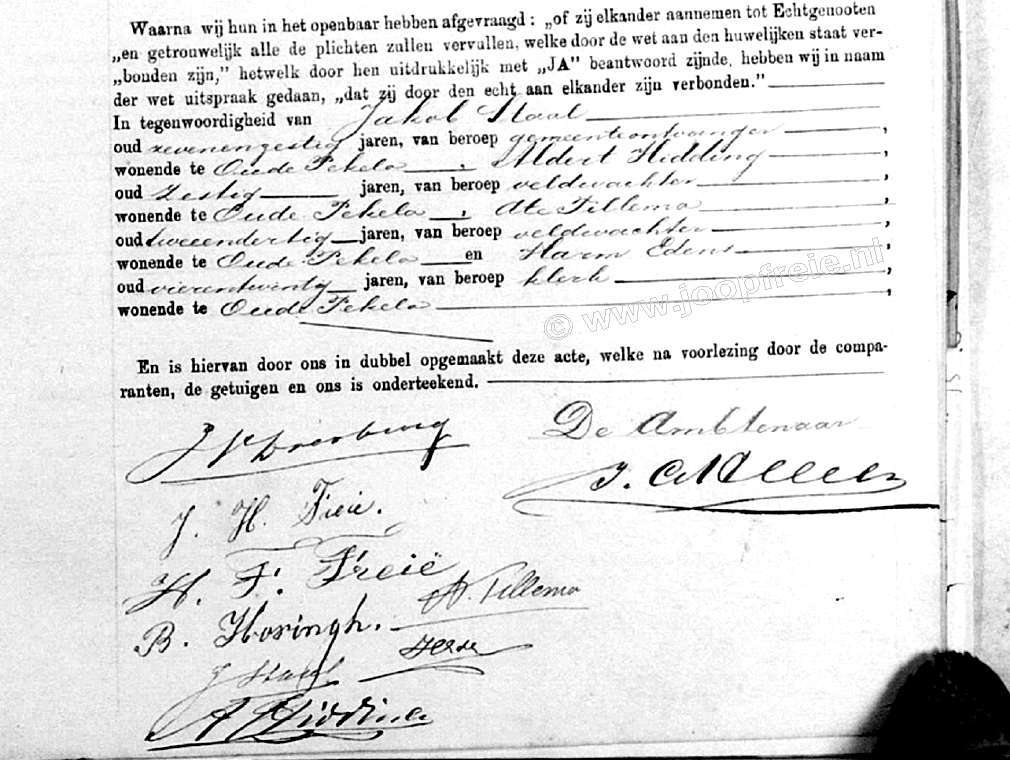 Waarna wij hun in het openbaar hebben afgevraagd: „of zij elkander aannemen tot Echtgenooten
„en getrouwelijk alle de plichten zullen vervullen, welke door de wet aan den huwelijken staat ver-
„bonden zijn,” hetwelk door hen uitdrukkelijk met „JA” beantwoord zijnde, hebben wij in naam
der wet uitspraak gedaan, „dat zij door den echt aan elkander zijn verbonden.”
In tegenwoordigheid van Jakob Staal
oud zevenenzestig jaren, van beroep gemeenteontvanger,
wonende te Oude Pekela, Aldert Hidding,
oud zestig jaren, van beroep veldwachter,
wonende te Oude Pekela, Ate Tillema,
oud tweeendertig jaren, van beroep veldwachter,
wonende te Oude Pekela en Harm Edens,
oud vierentwintig jaren, van beroep klerk,
wonende te Oude Pekela,
© www.joopfreie.nl
En is hiervan door ons in dubbel opgemaakt deze acte, welke na voorlezing door de compa-
ranten, de getuigen en ons is onderteekend.
De Ambtenaar
J. H. Freie.
H. F. Freië
A. Tillema
B. Hosingh.
J Staal
A Hidding